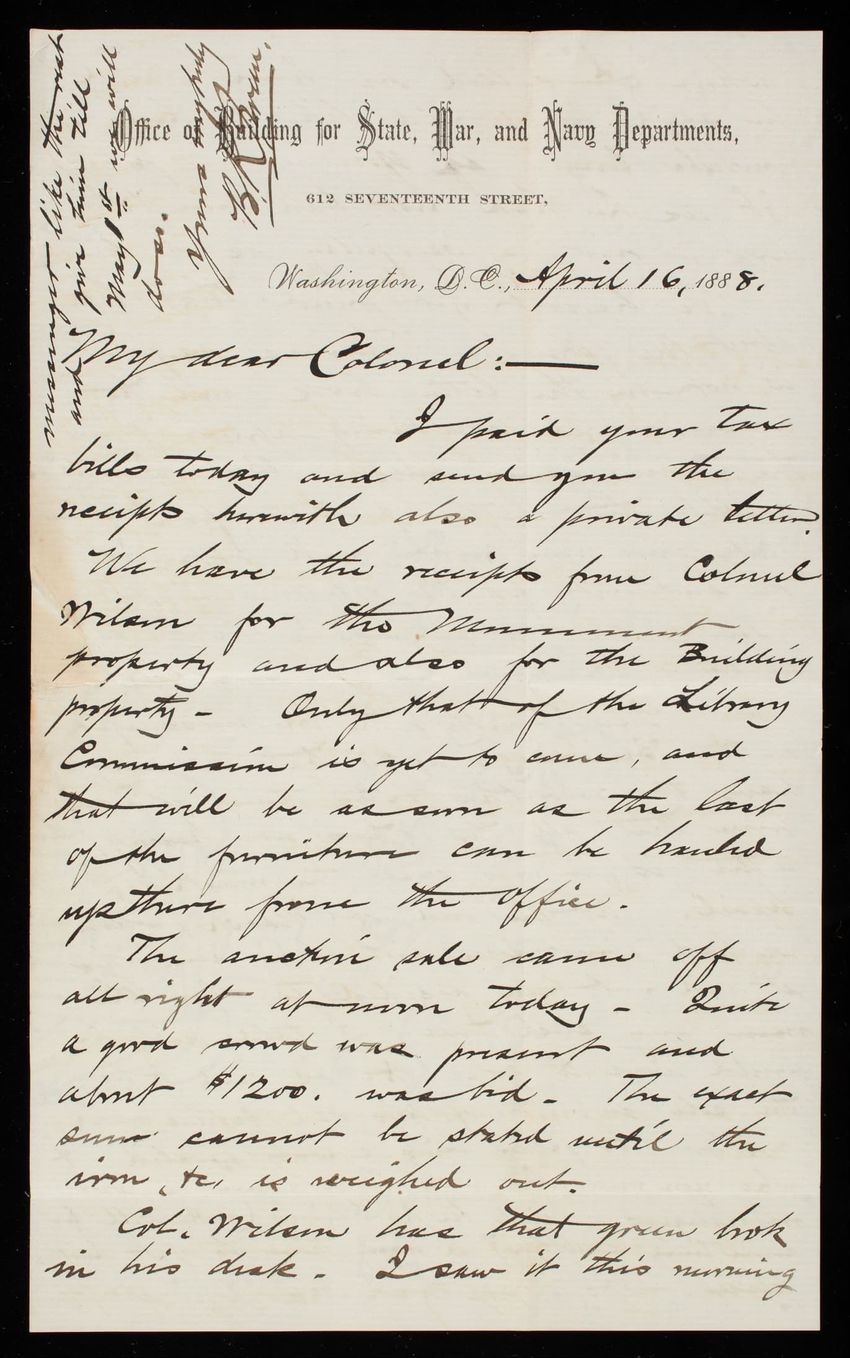 Office of Building for State, War, and Navy Departments,
612 SEVENTEENTH STREET,
Washington, D.C., April 16, 1888.
My dear Colonel:—
I paid your tax
bills today and send you the
receipts herewith also a private letter.
We have the receipts from Colonel
Wilson for the Monument
property and also for the Building
property - Only that of the Library
Commission is yet to come, and
that will be as soon as the last
of the furniture can be hauled
up there from the office.
The auction sale came off
all right at noon today - Quite
a good crowd was present and
about $1200. was bid - The exact
sum cannot be stated until the
iron, &c, is weighed out.
Col. Wilson has that green book
in his desk - I saw it this morning
messenger like the rest
and give him till
May 1st we will
do so.
Yours very truly
B. R. Green.